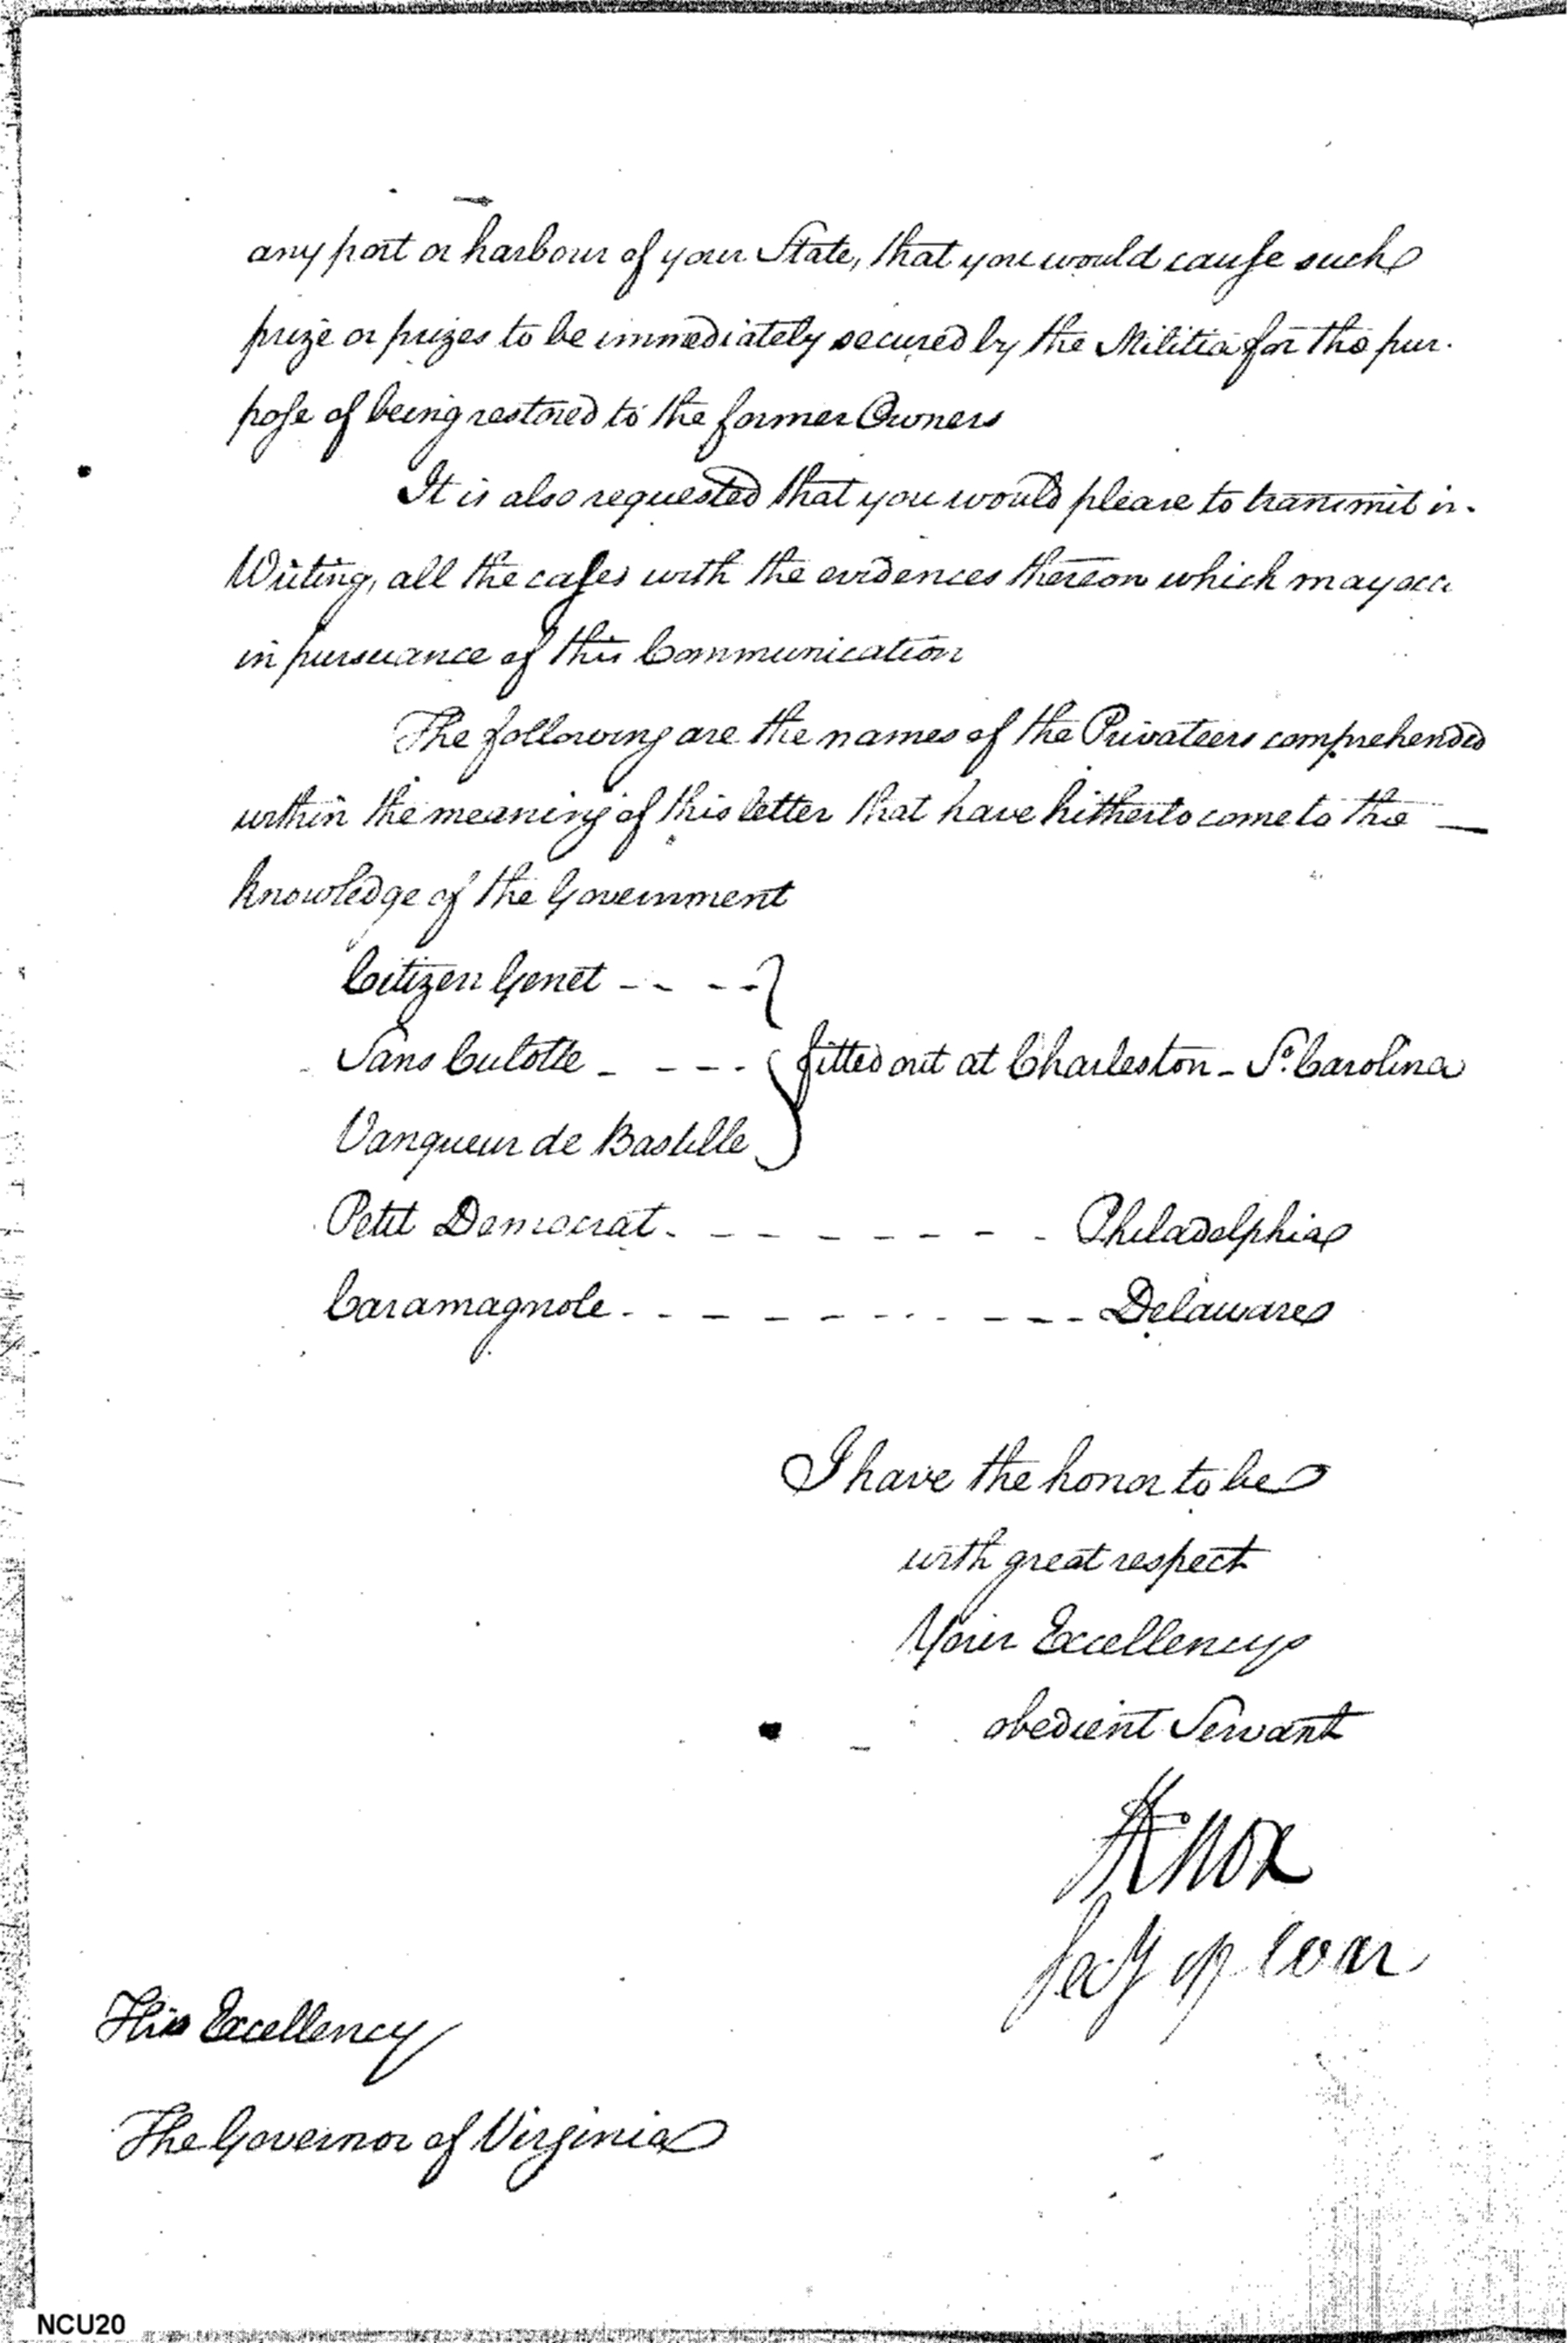 any port or harbour of your State, that you would cause such
prize or prizes to be immediately secured by the Militia for the pur-
pose of being restored to the former Owners
It is also requested that you would please to transmit in
Writing, all the cases with the evidences thereon which may
in pursuance of this Communication
The following are the names of the Privateers comprehended
within the meaning of this letter that have hitherto come to the —
knowledge of the Government
Citizen Genet - - - -
Sans Culotte - - - - fitted out at Charleston - So. Carolina
Vanqueur de Bastille
Petit Democrat - - - - - - - - Philadelphia
Caramagnole - - - - - - - - - - Delaware
I have the honor to be
with great respect
Your Excellencys
obedient Servant
HKnox
Secy of War
His Excellency
The Governor of Virginia
NCU20